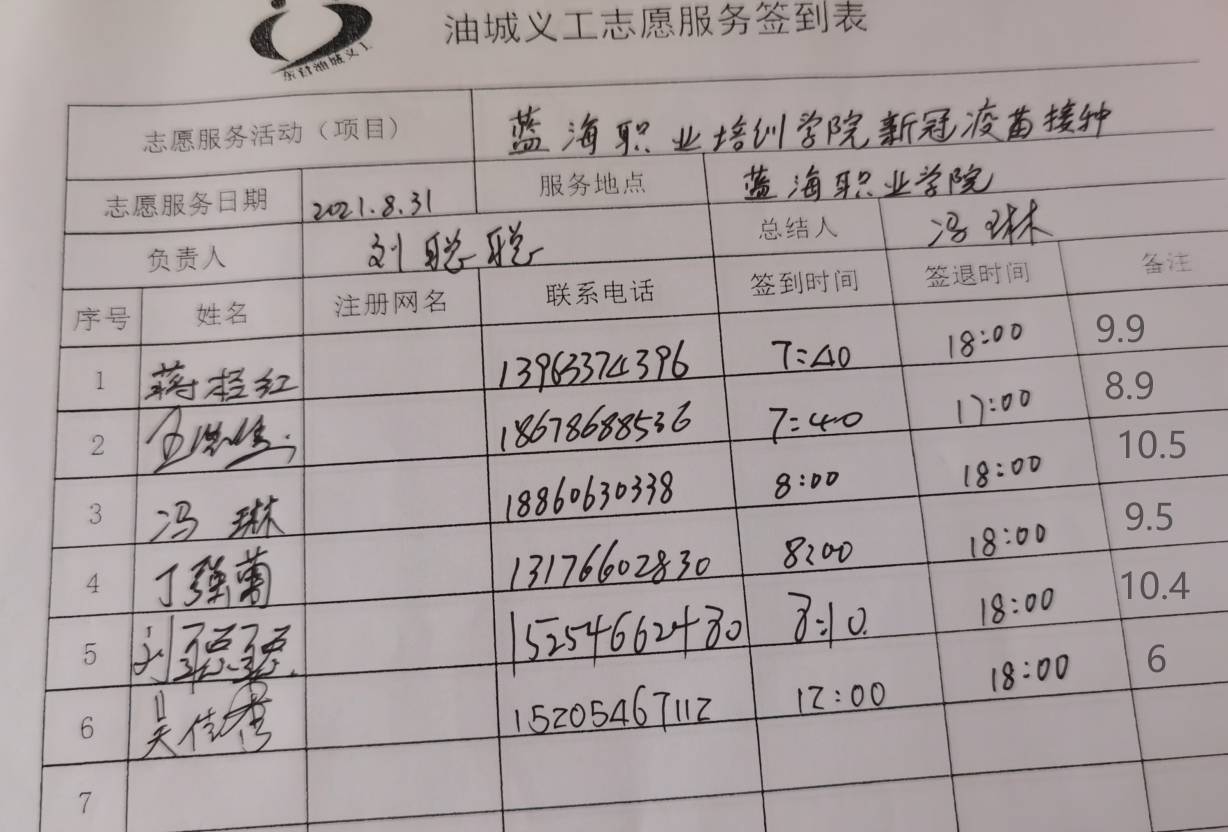 东营油城义工
油城义工志愿服务签到表
志愿服务活动（项目） 蓝海职业培训学院新冠疫苗接种
志愿服务日期 2021.8.31 服务地点 蓝海职业学院
负责人 刘聪聪 总结人 冯琳
序号 姓名 注册网名 联系电话 签到时间 签退时间 备注
1 蒋桂红 13963374396 7:40 18:00 9.9
2 18678688536 7:40 17:00 8.9
3 冯琳 18860630338 8:00 18:00 10.5
4 丁强菊 13176602830 8:00 18:00 9.5
5 刘聪聪 15254662480 8:10 18:00 10.4
6 吴佳秀 15205467112 12:00 18:00 6
7